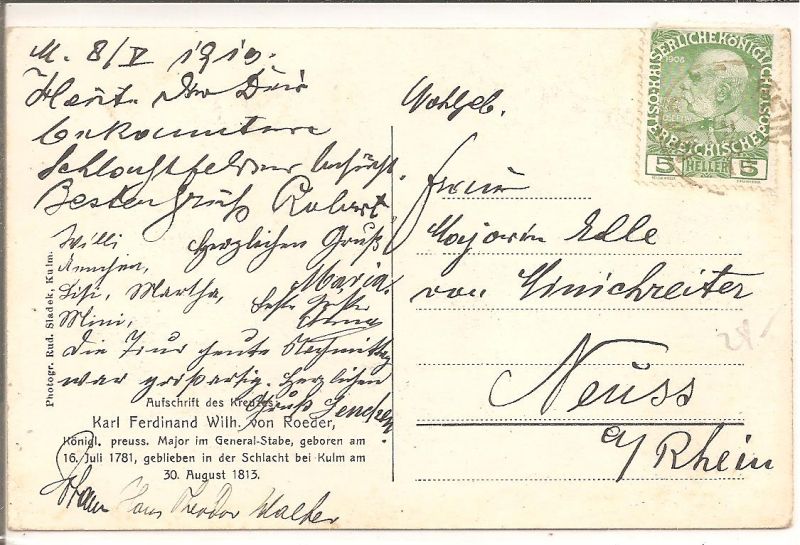 M. 8/V 1910.
Heut. Dir
bekannten
Schlachtfelder besucht.
Besten Gruß Robert
Willi herzlichen Gruß
Annchen, Maria.
Lisi, Martha,
Mini,
die Tour heute Nachmittag
war großartig. Herzlichen
Gruß
Photogr. Rud. Sladek, Kulm.
Aufschrift des Kreuzes:
Karl Ferdinand Wilh. von Roeder,
Königl. preuss. Major im General-Stabe, geboren am
16. Juli 1781, geblieben in der Schlacht bei Kulm am
30. August 1813.
Hans Theodor Walter
Wohlgeb.
Frau
Majorin Edle
von Sinichreiter
Neuss
a/Rhein
KAISERLICHE KÖNIGLICHE ÖSTERREICHISCHE POST
1908
5 HELLER 5